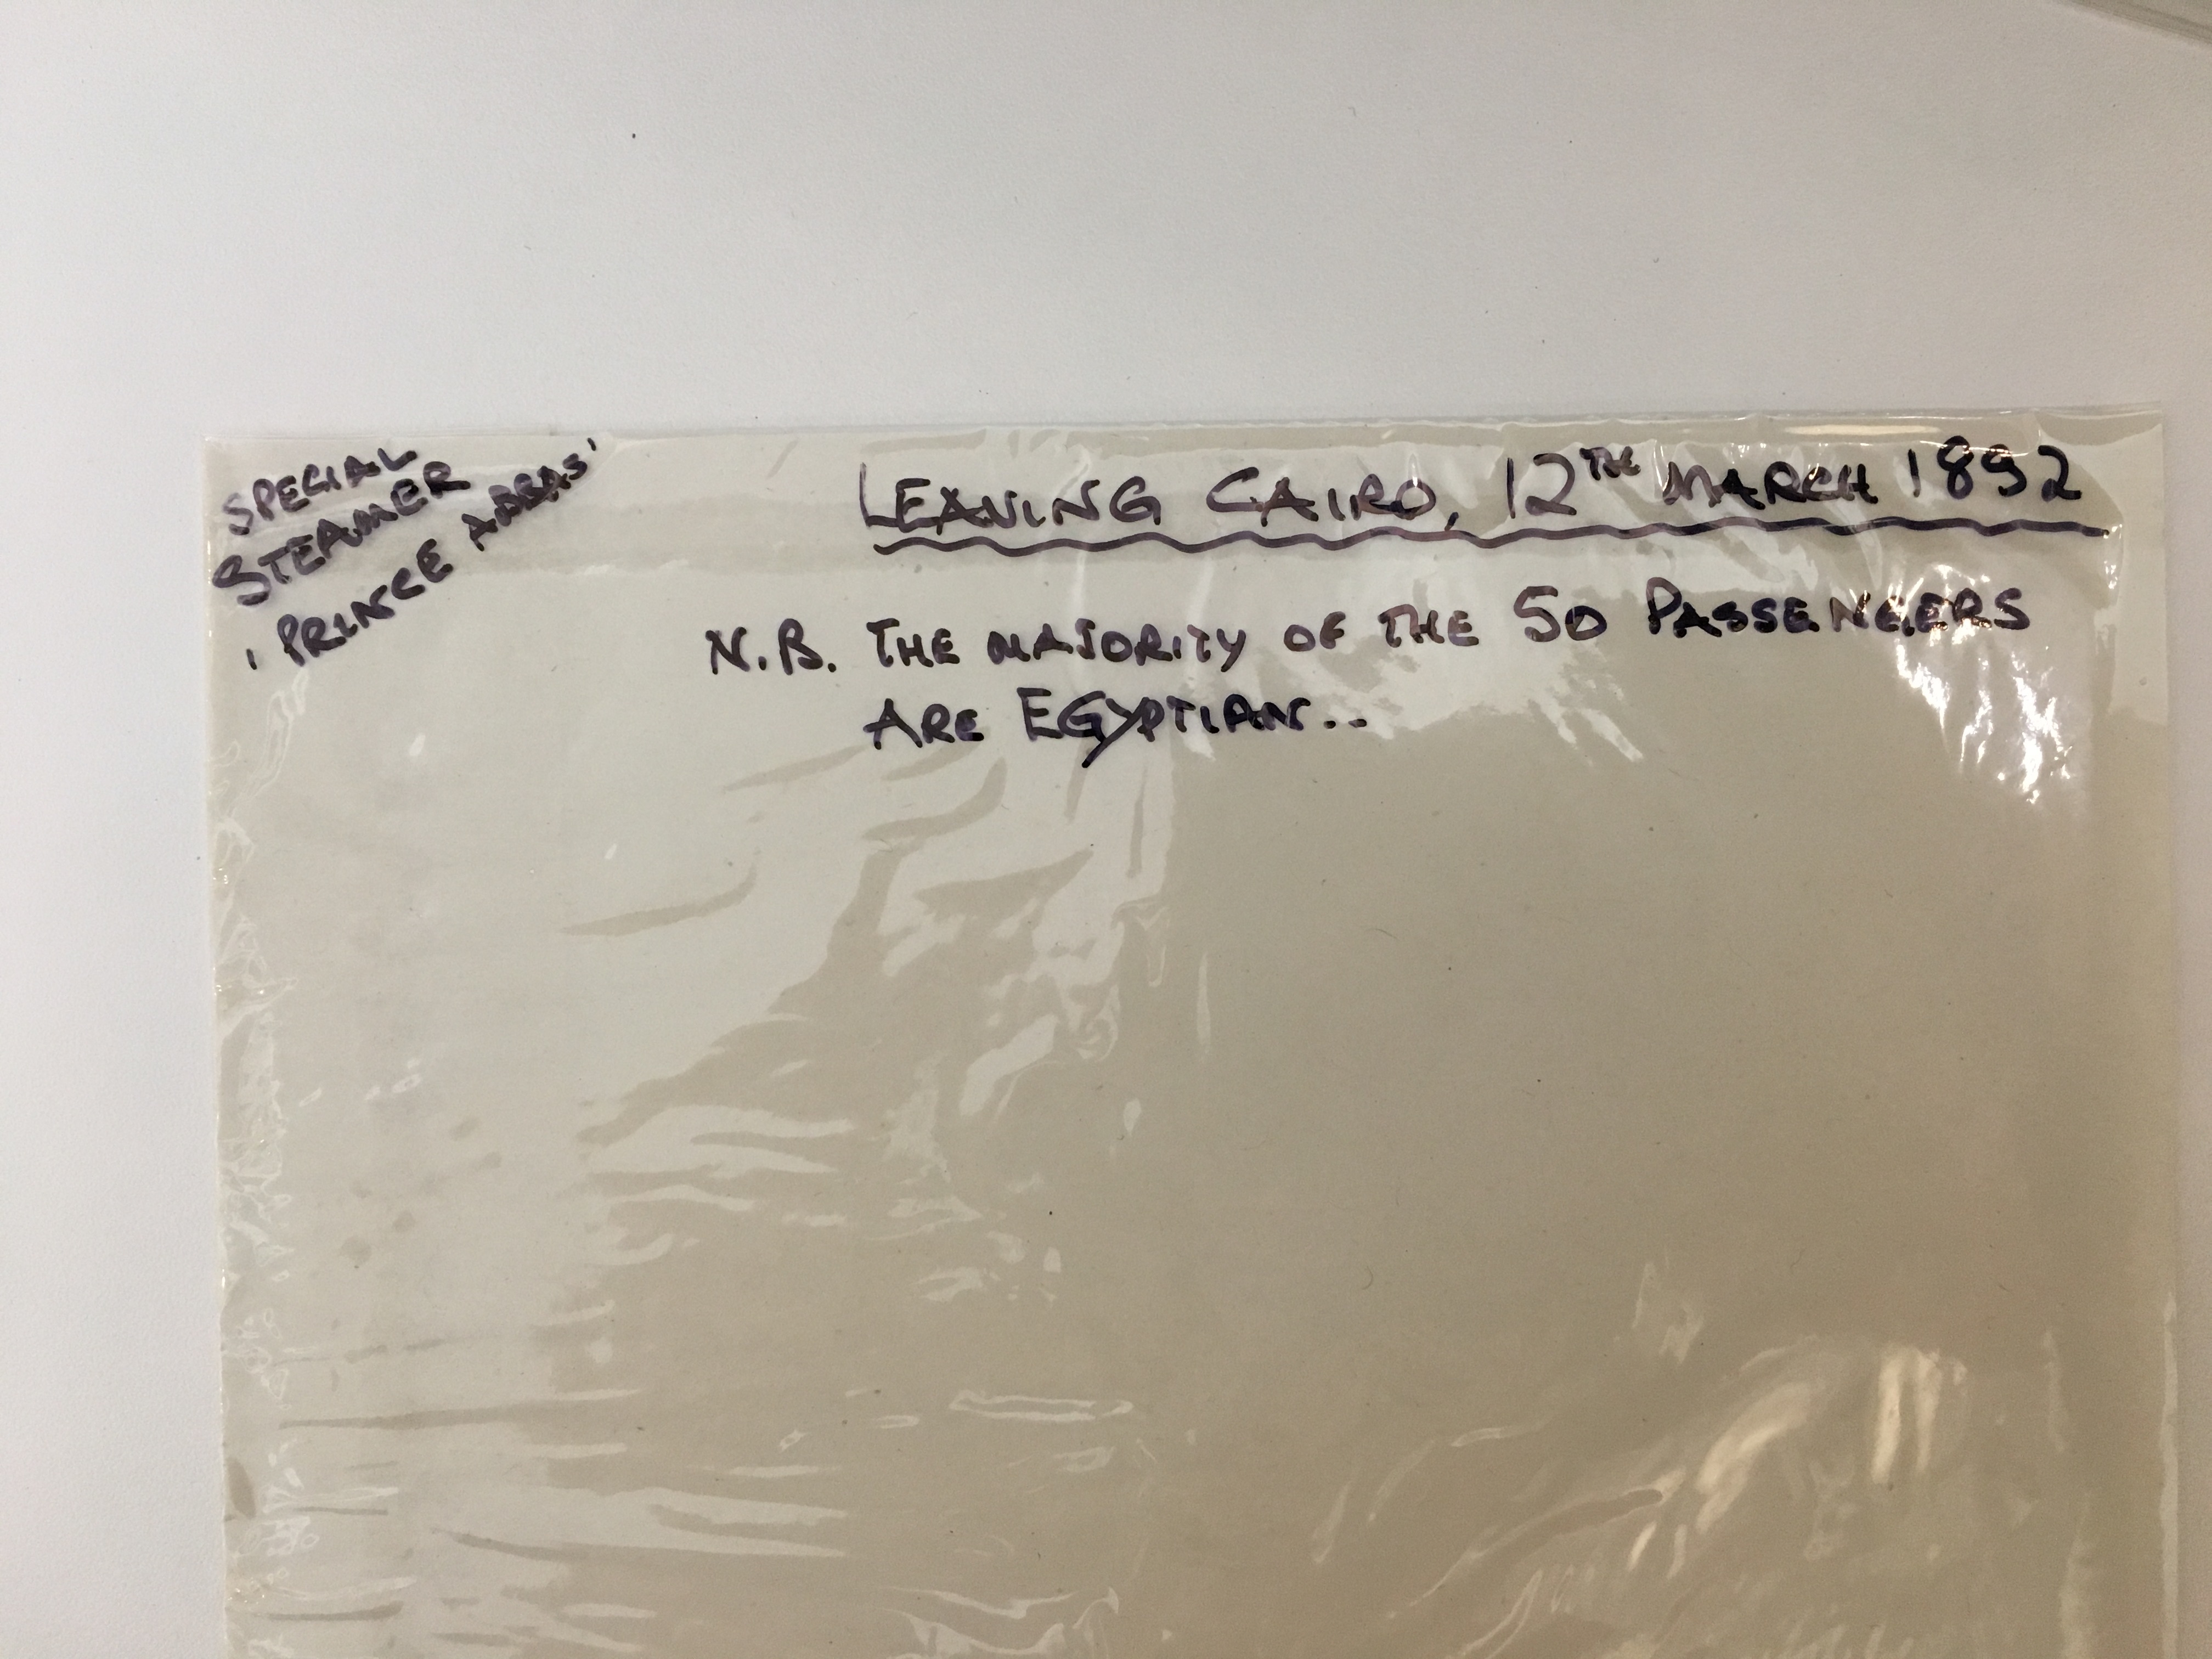 SPECIAL
STEAMER
'PRINCE ABBAS'
LEAVING CAIRO, 12TH MARCH 1892
N.B. THE MAJORITY OF THE 50 PASSENGERS
ARE EGYPTIAN..